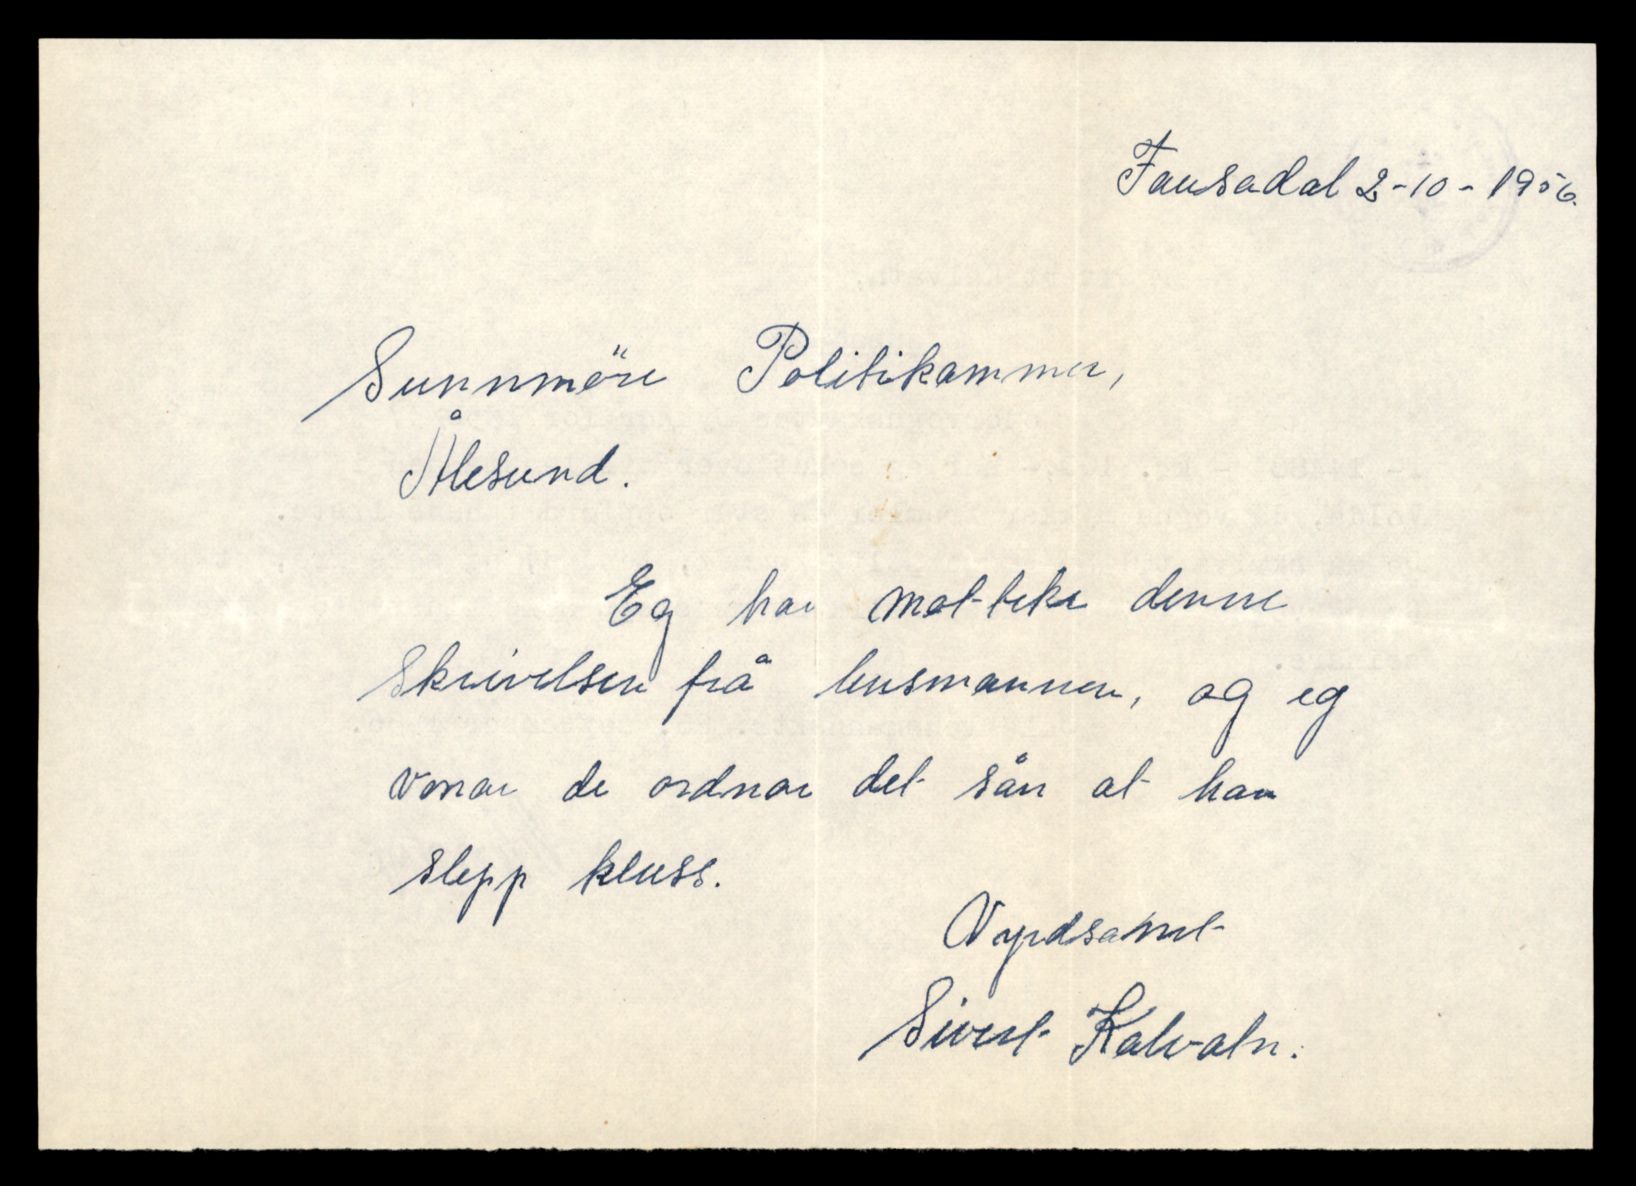 Fausadal 2-10-1956.
Sunnmöre Politikammer,
Ålesund.
Eg har motteke denne
skrivelsen frå lensmannen, og eg
vonar de ordnar det sån at han
slepp kluss.
Vyrdsamt
Sivert Kalvatn.